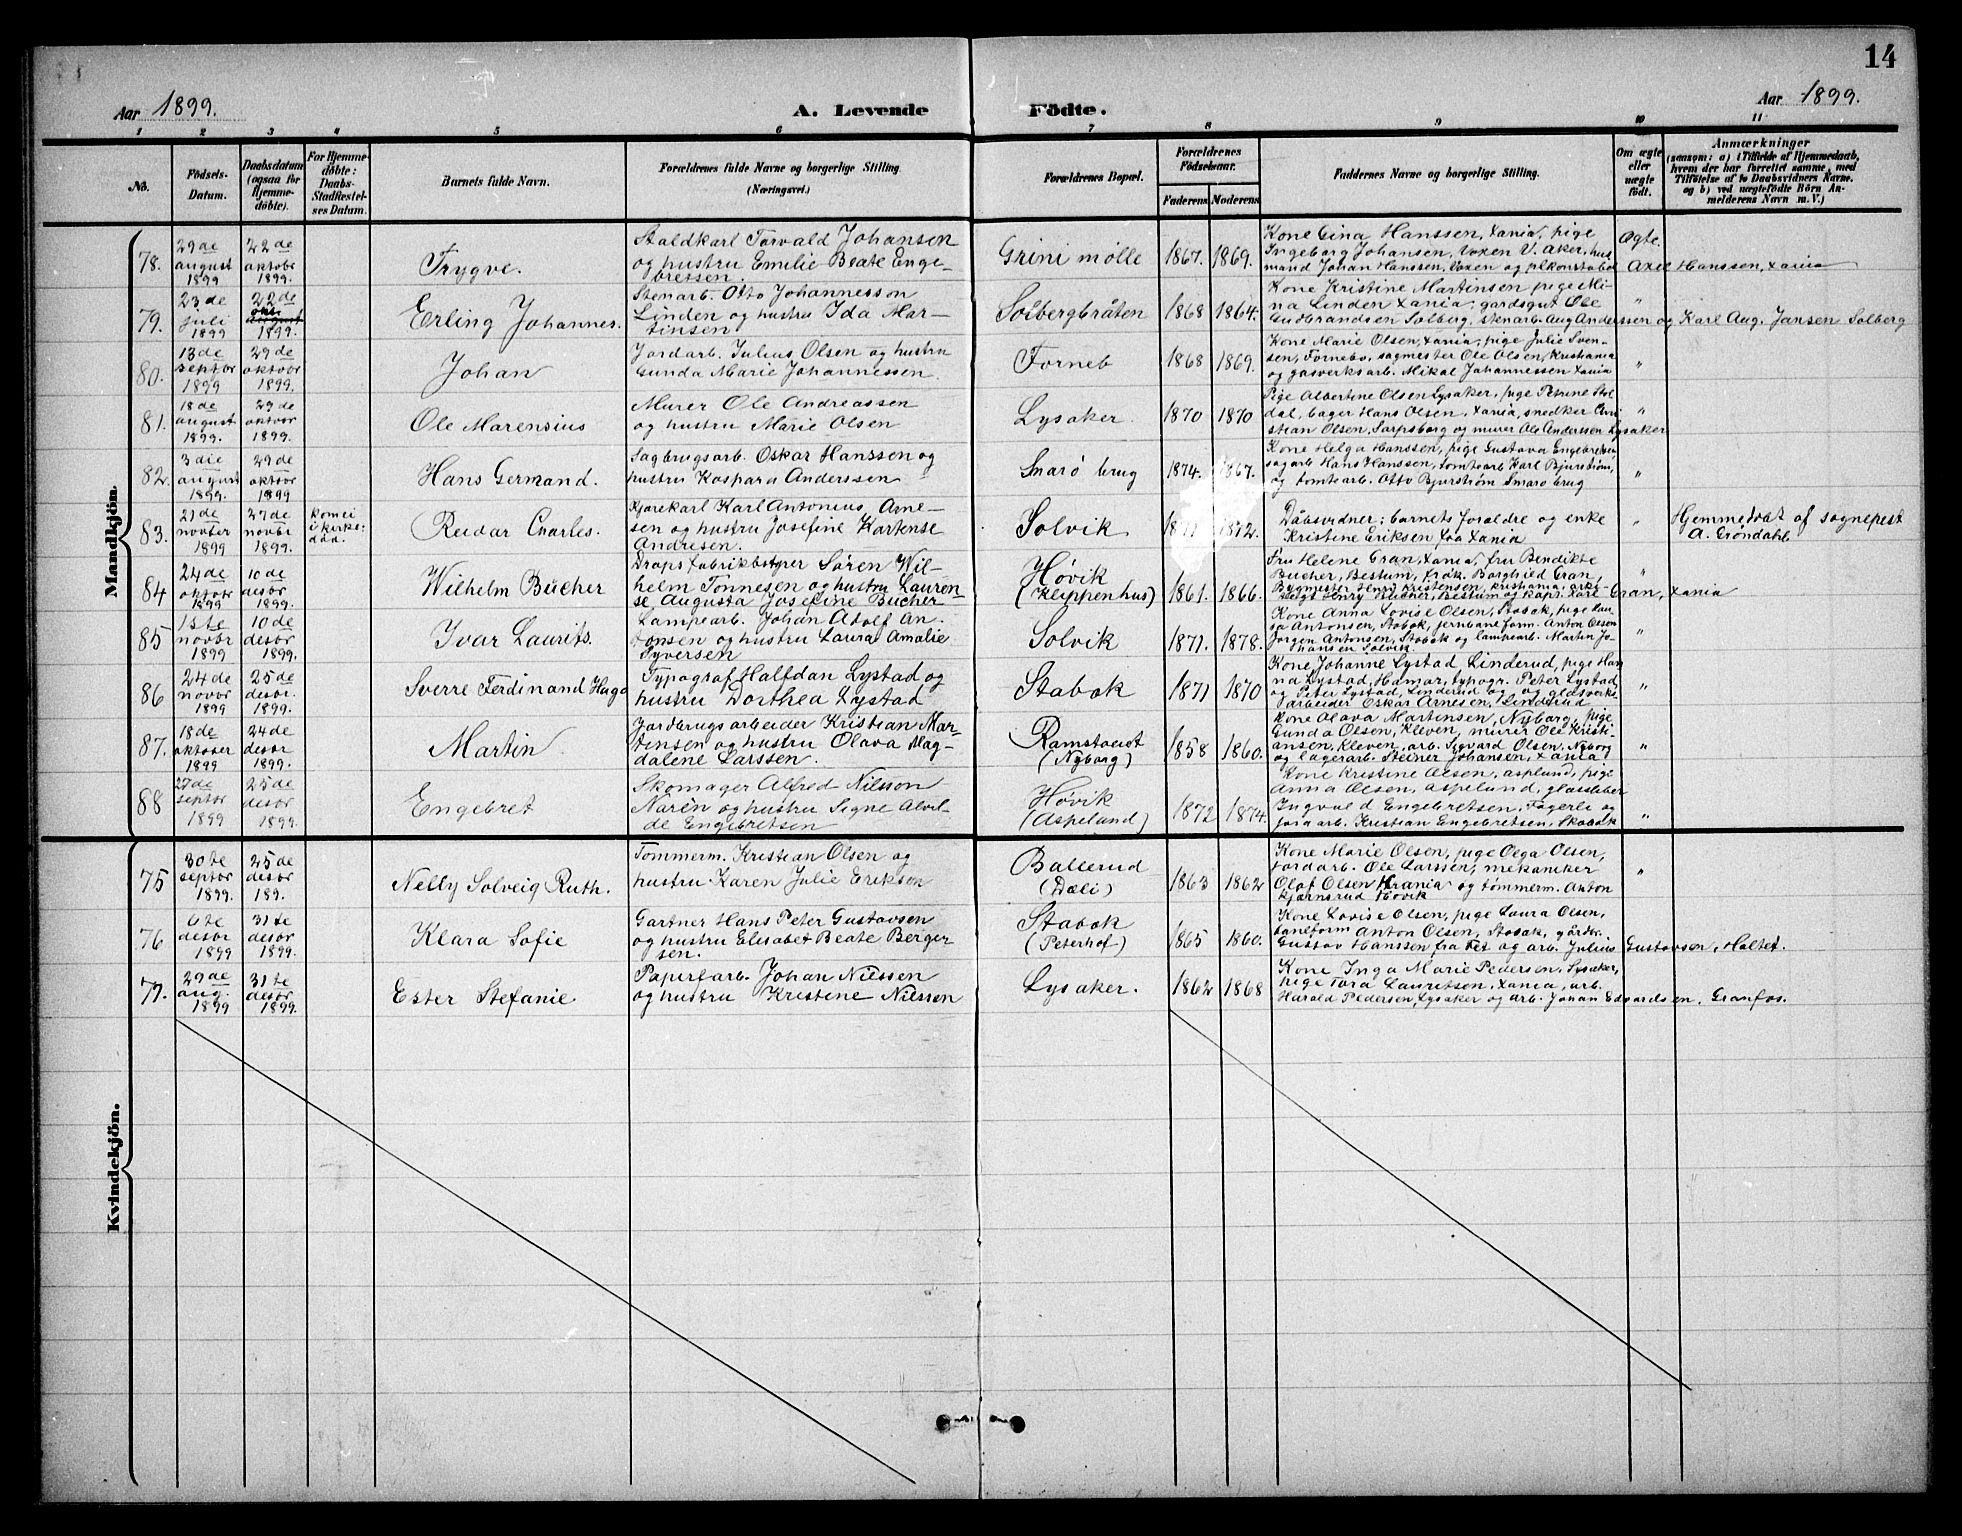 14
Aar 1899.
A. Levende Födte.
Aar 1899.
1 2 3 4 5 6 7 8 9 10 11
No.
Födsels-Datum.
Daabsdatum (ogsaa for Hjemme-döbte).
For Hjemme-döbte: Daabs-Stadfæstel-ses Datum.
Barnets fulde Navn.
Forældrenes fulde Navne og borgerlige Stilling. (Næringsvei.)
Forældrenes Bopæl.
Forældrenes Födselsaar. Faderens Moderens
Faddernes Navne og borgerlige Stilling.
Om ægte eller uægte födt.
Anmærkninger
(saasom: a) i Tilfælde af Hjemmedaab,
hvem der har forrettet samme, med
Tilföielse af to Daabsvidners Navne.
og b) ved uægtefödte Börn An-
melderens Navn m. V.)
Mandkjön.
78. 29de august 1899 22de oktobr 1899. Trygve. Staldkarl Torvald Johansen
og hustru Emilie Beate Enge-
bretsen Grini mølle 1867. 1869. Kone Gina Hanssen, Xania, pige
Ingeborg Johansen, Voxen V. Aker, hus
mand Johan Hanssen, Voxen og plkonstabel Axel Hanssen, Xania Ægte.
79. 23de juli 1899 22de oktr. august 1899. Erling Johannes. Stenarb. Otto Johannesson
Linden og hustru Ida Mar-
tinsen Solbergbråten 1868 1864. Kone Kristine Martinsen pige Mi-
na Linden Xania; gardsgut Ole
Gudbrandsen Solberg, stenarb. Aug Anderssen og Karl Aug. Jansen Solberg "
80. 13de septbr 1899 29de oktobr 1899. Johan Jordarb. Julius Olsen og hustru
Gunda Marie Johannessen. Forneb 1868 1869. Kone Marie Olsen, Xania; pige Julie Sven-
sen, Fornebo, sagmester Ole Olsen, Kristiania
og gasverksarb. Mikal Johannessen Xania "
81. 18de august 1899. 29de oktovr 1899. Ole Marensius Murer Ole Andreassen
og hustru Marie Olsen Lysaker. 1870 1870 Pige Albertine Olsen Lysaker, pige Petrine Stol
dal, bager Hans Olsen, Xania, snedker Cri
stian Olsen, Sarpsborg og murer Ole Anderssen Lysaker "
82. 3die august 1899. 29de oktovr 1899 Hans Germand. Sagbrugsarb. Oskar Hanssen og
hustru Kaspara Anderssen Snarø brug 1874. 1867. Kone Helga Hanssen, pige Gustava Engebretsen
sagarb Hans Hanssen, tomtearb Karl Bjurstrøm,
og tomtearb. Otto Bjurstrøm Snarø brug "
83. 21de novbr 1899 27de novbr 1899. Reidar Charles. Kjørekarl Karl Antonius Arne-
sen og hustru Josefine
Andresen. Solvik 1872. Dåbsvidner: barnets foraldre og enke
Kristine Eriksen fra Xania " Hjemmedøbt af sognepest
A. Grøndahl
84 24de oktobr 1899 10de desbr 1899. Wilhelm Bücher Søren Wil-
helm Tønnesen og hustru Lauren-
se Augusta Josefine Bücher Høvik
(Klippenhus) 1861. 1866. Fru Helene Gran, Xania, fru Bendikte
Bücher, Bestum, frøk. Borghild Gran,
Bygmester Henry Kristensen, Kristiania, arki-
tekt Henry Bücher, Bestum og kapt. Karl Gran, Xania "
85 1ste novbr 1899 10de desbr 1899. Ivar Laurits. Lampearb. Johan Adolf An-
tonsen og hustru Laura Amalie
Syversen Solvik 1877. 1878. Kone Anna Lovise Olsen, Stabæk, pige Lau-
ra Antonsen, Stabæk, jernbaneform. Anton Olsen
Jørgen Antonsen, Stabæk og lampearb. Martin Jo-
hansen Solvik. "
86 24de novbr 1899 25de desbr. 1899. Sverre Ferdinand Hugo Typograf Halfdan Lystad og
hustru Dorthea Lystad Stabæk 1871 1870 Kone Johanne Lystad Linderud, pige Han
na Lystad, Hamar, typogr. Peter Lystad
og Peter Lystad, Linderud og og glasverks-
arbeider Oskar Arnesen, Linderud "
87. 18de oktober 1899 24de desbr 1899. Martin Jordbrugsarbeider Kristian Mar-
tensen og hustru Olava Mag-
dalene Larssen. Ramstadt
(Nyborg) 1858 1860. Kone Olava Martinsen, Nyborg, pige
Gunda Olsen, Kleven, murer Ole Kristi-
ansen, Kleven, arb. Sigvard Olsen, Nyborg
og lagerarb. Steiner Johansen, Xania "
88 27de septbr 1899 25de desbr 1899. Engebret Skomager Alfred Nilsson
Narén og hustru Signe Alvil-
de Engebretsen Høvik
(Aspelund) 1872 1874. Kone Kristine Olsen, Asplund, pige
Anna Olsen, Aspelund, glassliber
Ingvald Engebretsen, Fagerli og
jordarb. Kristian Engebretsen, Stabæk "
Kvindekjön.
75 30te septbr 1899. 25de desbr 189. Nelly Solveig Ruth. Tømmerm. Kristian Olsen og
hustru Karen Julie Erikson Ballerud
(Dæli) 1863 1862 Kone Marie Olsen, pige Olga Olsen,
jordarb. Ole Larssen, mekaniker
Olaf Olsen Krania og tømmerm. Anton
Kjærnsrud Høvik "
76 6te desbr 1899 31te desbr 1899. Klara Sofie Gartner Hans Peter Gustavsen
og hustru Elisabet Beate Berger
sen. Stabæk
(Peterhof) 1865 1860. Kone Lovise Olsen, pige Laura Olsen,
baneform Anton Olsen, Stabæk, gårdbr.
Gustav Hanssen fra Fet og arb. Julius Gustavsen, Holtet.
77. 29de aug. 1899 31te desbr 1899. Ester Stefanie Papirfarb. Johan Nilssen
og hustru Kristine Nilssen Lysaker. 1862 1868 Kone Inga Marie Pedersen, Lysaker,
pige Tora Lauritsen, Xania, arb.
Harald Pedersen, Lysaker og arb. Johan Edvardsen, Granfos.